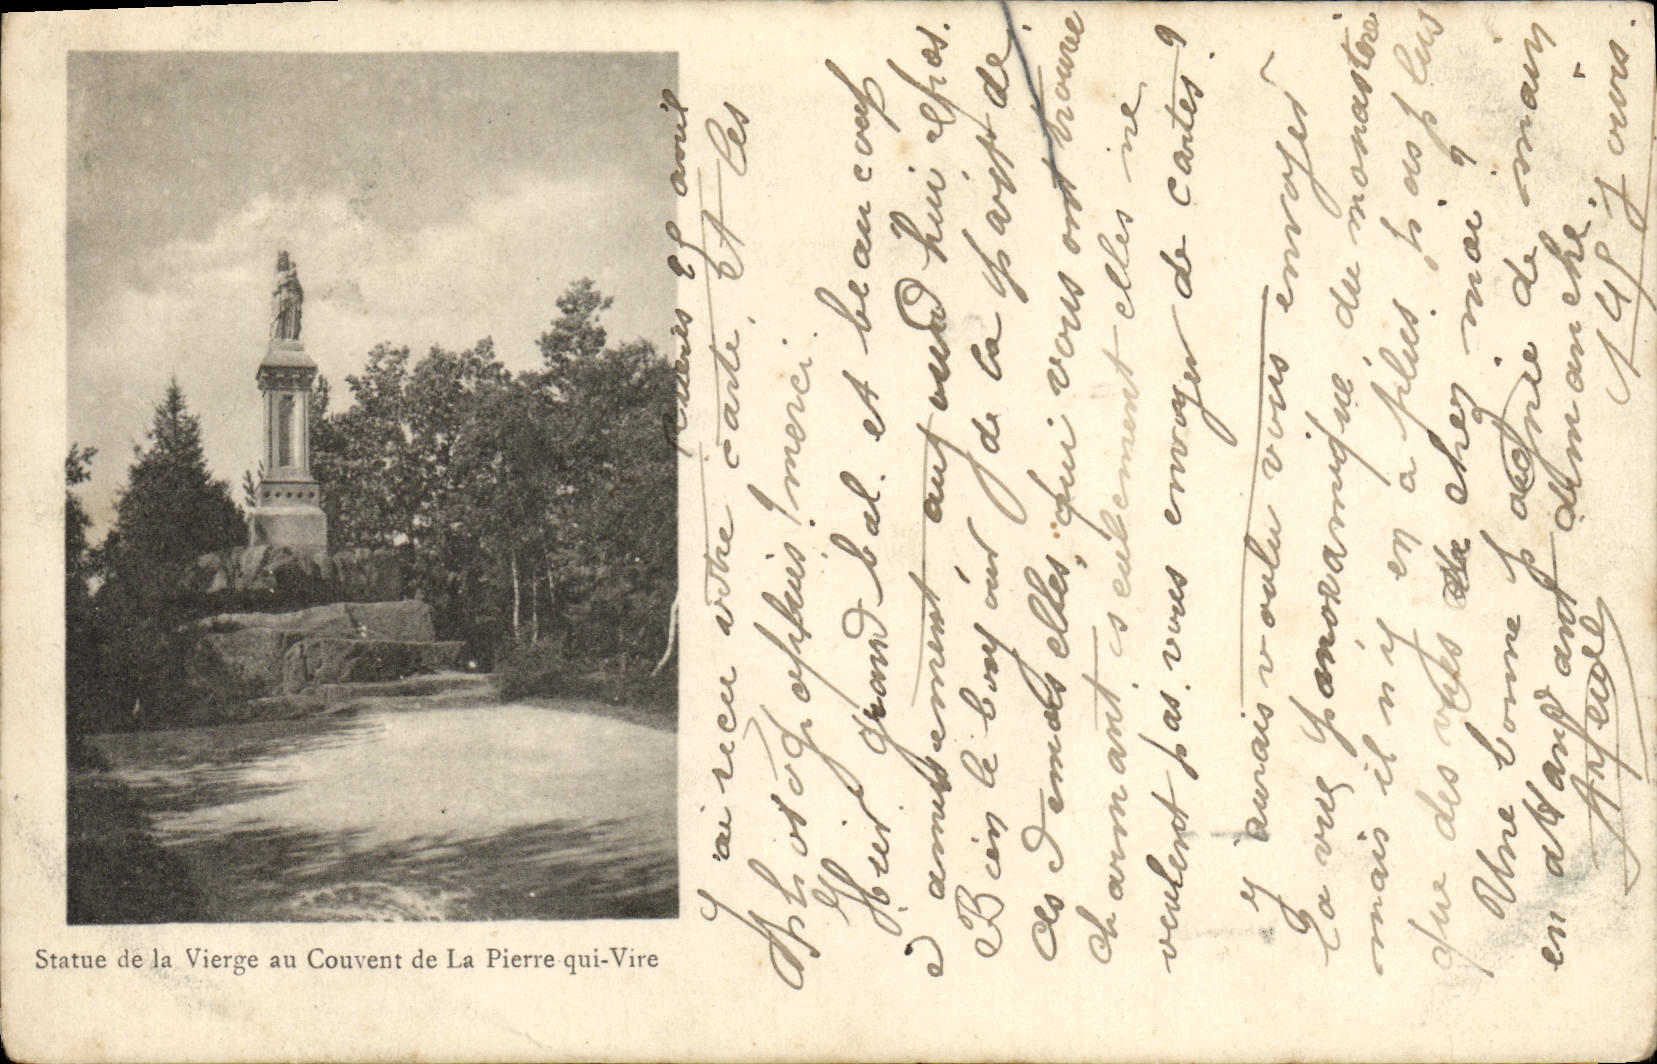 Statue de la Vierge au Couvent de La Pierre-qui-Vire
avril
J'ai reçu votre carte, et les
photographies, merci.
Hier grand bal. et beaucoup
d'amusement aujourd'hui
Bien le bonjour de la part de
ces demoiselles, qui vous ont trouvé
charmant, seulement elles ne
veulent pas vous envoyer de cartes.
J'aurais voulu vous envoyer
la vue panoramique du monastère
mais il n'y en a plus, pas plus
que des vues de chez moi,
Une bonne poignée de main
en attendant dimanche.